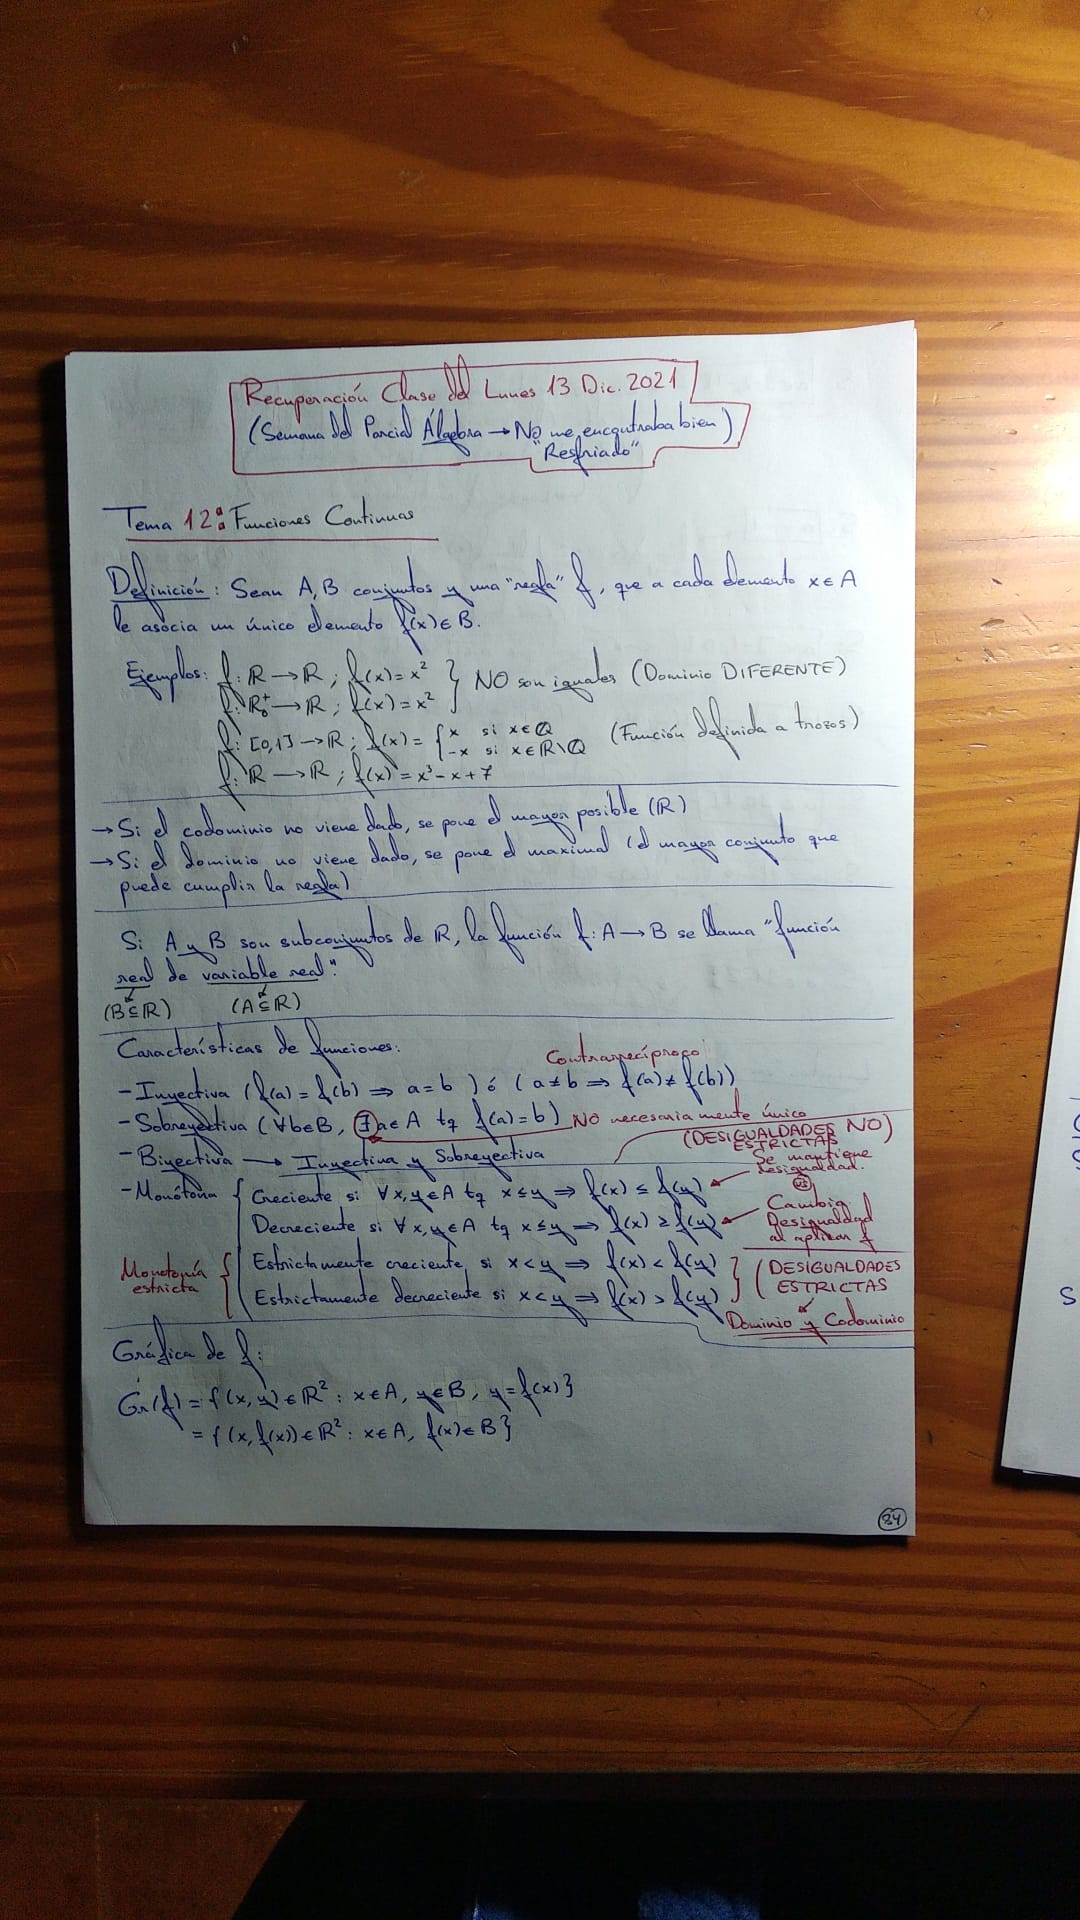 Recuperación Clase del Lunes 13 Dic. 2021
(Semana del Parcial Álgebra → No me encontraba bien)
"Resfriado"
Tema 12: Funciones Continuas
Definición: Sean A, B conjuntos y una "regla" f, que a cada elemento x ∈ A
le asocia un único elemento f(x) ∈ B.
Ejemplos: f: ℝ → ℝ ; f(x) = x² } NO son iguales (Dominio DIFERENTE)
f: ℝ₀⁺ → ℝ ; f(x) = x²
f: [0,1] → ℝ ; f(x) = { x si x ∈ ℚ (Función definida a trozos)
-x si x ∈ ℝ\ℚ
f: ℝ → ℝ ; f(x) = x³ - x + 7
→ Si el codominio no viene dado, se pone el mayor posible (ℝ)
→ Si el dominio no viene dado, se pone el maximal (el mayor conjunto que
puede cumplir la regla)
Si A y B son subconjuntos de ℝ, la función f: A → B se llama "función
real de variable real".
(B ⊆ ℝ) (A ⊆ ℝ)
Características de funciones:
Contrarrecíproco
- Inyectiva (f(a) = f(b) ⇒ a = b) ó (a ≠ b ⇒ f(a) ≠ f(b))
- Sobreyectiva (∀b∈B, ∃a∈A tq f(a) = b) NO necesariamente único
- Biyectiva → Inyectiva y Sobreyectiva
(DESIGUALDADES NO ESTRICTAS)
- Monótona { Creciente si ∀x, y ∈ A tq x ≤ y ⇒ f(x) ≤ f(y) ← Se mantiene desigualdad.
vs
Decreciente si ∀x, y ∈ A tq x ≤ y ⇒ f(x) ≥ f(y) ← Cambia Desigualdad al aplicar f
Monotonía estricta { Estrictamente creciente si x < y ⇒ f(x) < f(y) } (DESIGUALDADES
Estrictamente decreciente si x < y ⇒ f(x) > f(y) ESTRICTAS
Dominio y Codominio
Gráfica de f:
Gr(f) = {(x, y) ∈ ℝ² : x ∈ A, y ∈ B, y = f(x)}
= {(x, f(x)) ∈ ℝ² : x ∈ A, f(x) ∈ B}